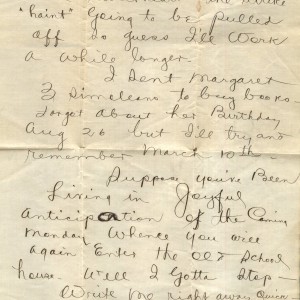 "haint" Going to be pulled
off so guess I'll Work
a while longer.
I Sent Margaret
3 Simoleans to buy books
Forgot about her Birthday
Aug 26 but I'll try and
remember March 10th -
Suppose you've Been
Living in Joyful
Anticipation of the Coming
Monday Whence You will
again Enter the old School
house. Well I Gotta Stop -
Write me right away Quinn